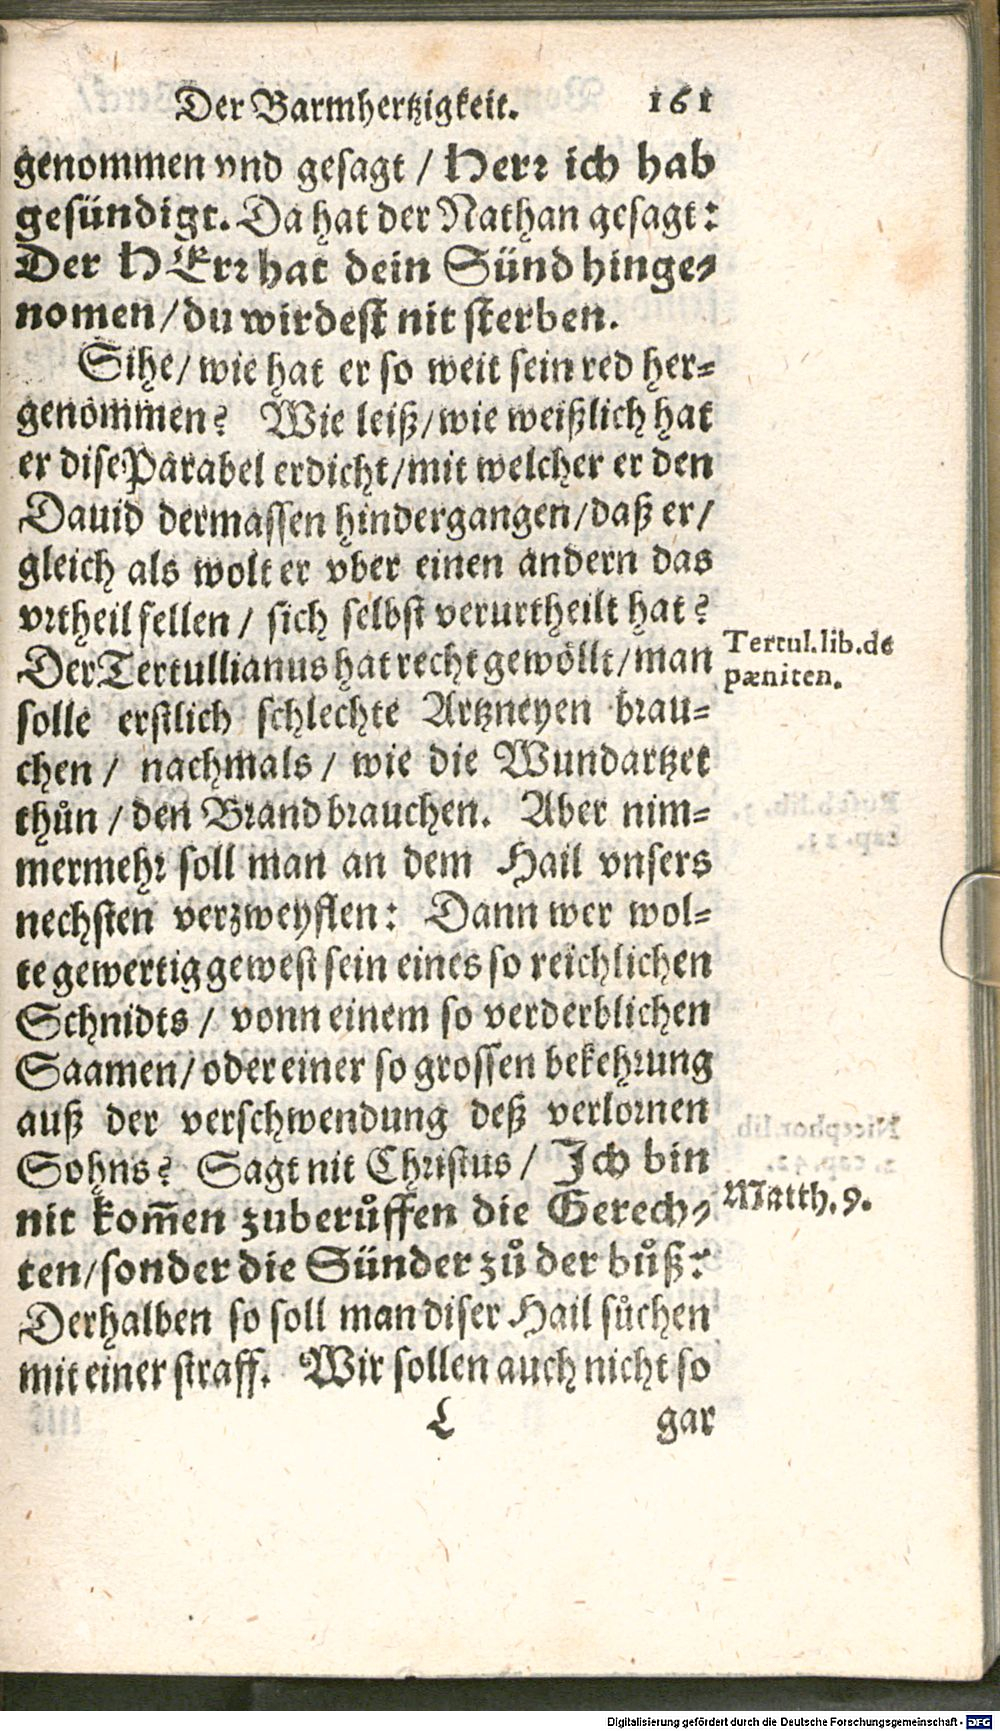 Der Barmhertzigkeit. 161
genommen vnd gesagt / Herr ich hab
gesündigt. Da hat der Nathan gesagt:
Der HErr hat dein Sünd hinge-
nomen/du wirdest nit sterben.
Sihe/ wie hat er so weit sein red her-
genommen? Wie leiß/wie weißlich hat
er dise Parabel erdicht/mit welcher er den
Dauid dermassen hindergangen/daß er/
gleich als wolt er vber einen andern das
vrtheil fellen / sich selbst verurtheilt hat?
Der Tertullianus hat recht gewöllt/man
Tertul. lib. de
pæniten.
solle erstlich schlechte Artzneyen brau-
chen / nachmals / wie die Wundartzet
thůn / den Brand brauchen. Aber nim-
mermehr soll man an dem Hail vnsers
nechsten verzweyflen: Dann wer wol-
te gewertig gewest sein eines so reichlichen
Schnidts / vonn einem so verderblichen
Saamen/oder einer so grossen bekehrung
auß der verschwendung deß verlornen
Sohns? Sagt nit Christus / Ich bin
nit kom̃en zuberůffen die Gerech-
Matth. 9.
ten/sonder die Sünder zů der bůß:
Derhalben so soll man diser Hail sůchen
mit einer straff. Wir sollen auch nicht so
L gar
Digitalisierung gefördert durch die Deutsche Forschungsgemeinschaft - DFG